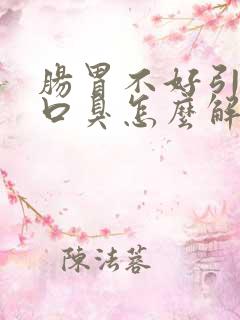 腸胃不好引
口臭怎麼解
陳法蓉